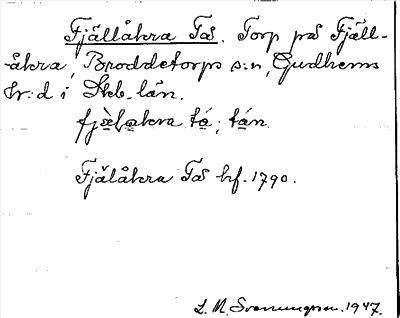 Fjällåkra Tå. Torp på Fjäll-
åkra, Broddetorps s:n, Gudhems
hr:d i Skb. län.
fjælakra tá; tán.
Fjälåkra Tå hf. 1790.
L. M. Svenungsson. 1947.